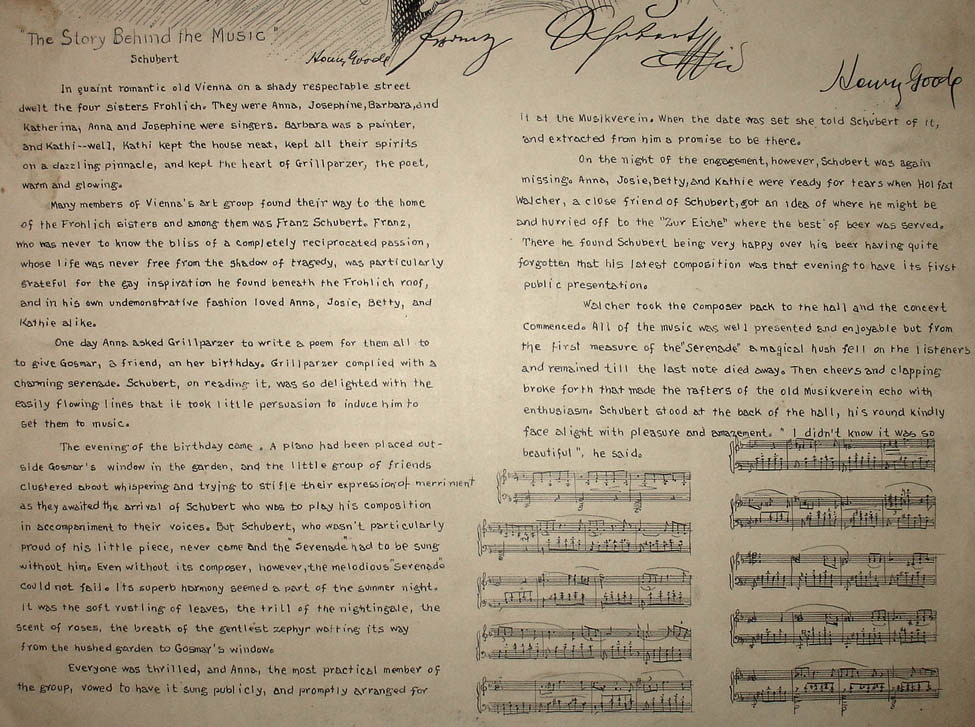 "The Story Behind the Music"
Schubert
Henry Goode
Franz Schubert
Henry Goode
In quaint romantic old Vienna on a shady respectable street
dwelt the four sisters Frohlich. They were Anna, Josephine, Barbara, and
Katherina, Anna and Josephine were singers. Barbara was a painter,
and Kathi--well, Kathi kept the house neat, kept all their spirits
on a dazzling pinnacle, and kept the heart of Grillparzer, the poet,
warm and glowing.
Many members of Vienna's art group found their way to the home
of the Frohlich sisters and among them was Franz Schubert. Franz,
who was never to know the bliss of a completely reciprocated passion,
whose life was never free from the shadow of tragedy, was particularly
grateful for the gay inspiration he found beneath the Frohlich roof,
and in his own undemonstrative fashion loved Anna, Josie, Betty, and
Kathie alike.
One day Anna asked Grillparzer to write a poem for them all to
to give Gosmar, a friend, on her birthday. Grillparzer complied with a
charming serenade. Schubert, on reading it, was so delighted with the
easily flowing lines that it took little persuasion to induce him to
set them to music.
The evening of the birthday came. A piano had been placed out-
side Gosmar's window in the garden, and the little group of friends
clustered about whispering and trying to stifle their expression of merriment
as they awaited the arrival of Schubert who was to play his composition
in accompaniment to their voices. But Schubert, who wasn't particularly
proud of his little piece, never came and the "Serenade" had to be sung
without him. Even without its composer, however, the melodious "Serenade"
could not fail. Its superb harmony seemed a part of the summer night.
It was the soft rustling of leaves, the trill of the nightingale, the
scent of roses, the breath of the gentlest zephyr wafting its way
from the hushed garden to Gosmar's window.
Everyone was thrilled, and Anna, the most practical member of
the group, vowed to have it sung publicly, and promptly arranged for
it at the Musikverein. When the date was set she told Schubert of it,
and extracted from him a promise to be there.
On the night of the engagement, however, Schubert was again
missing. Anna, Josie, Betty, and Kathie were ready for tears when Holfat
Walcher, a close friend of Schubert, got an idea of where he might be
and hurried off to the "Zur Eiche" where the best of beer was served.
There he found Schubert being very happy over his beer having quite
forgotten that his latest composition was that evening to have its first
public presentation.
Walcher took the composer back to the hall and the concert
commenced. All of the music was well presented and enjoyable but from
the first measure of the "Serenade" a magical hush fell on the listeners
and remained till the last note died away. Then cheers and clapping
broke forth that made the rafters of the old Musikverein echo with
enthusiasm. Schubert stood at the back of the hall, his round kindly
face alight with pleasure and amazement. "I didn't know it was so
beautiful", he said.